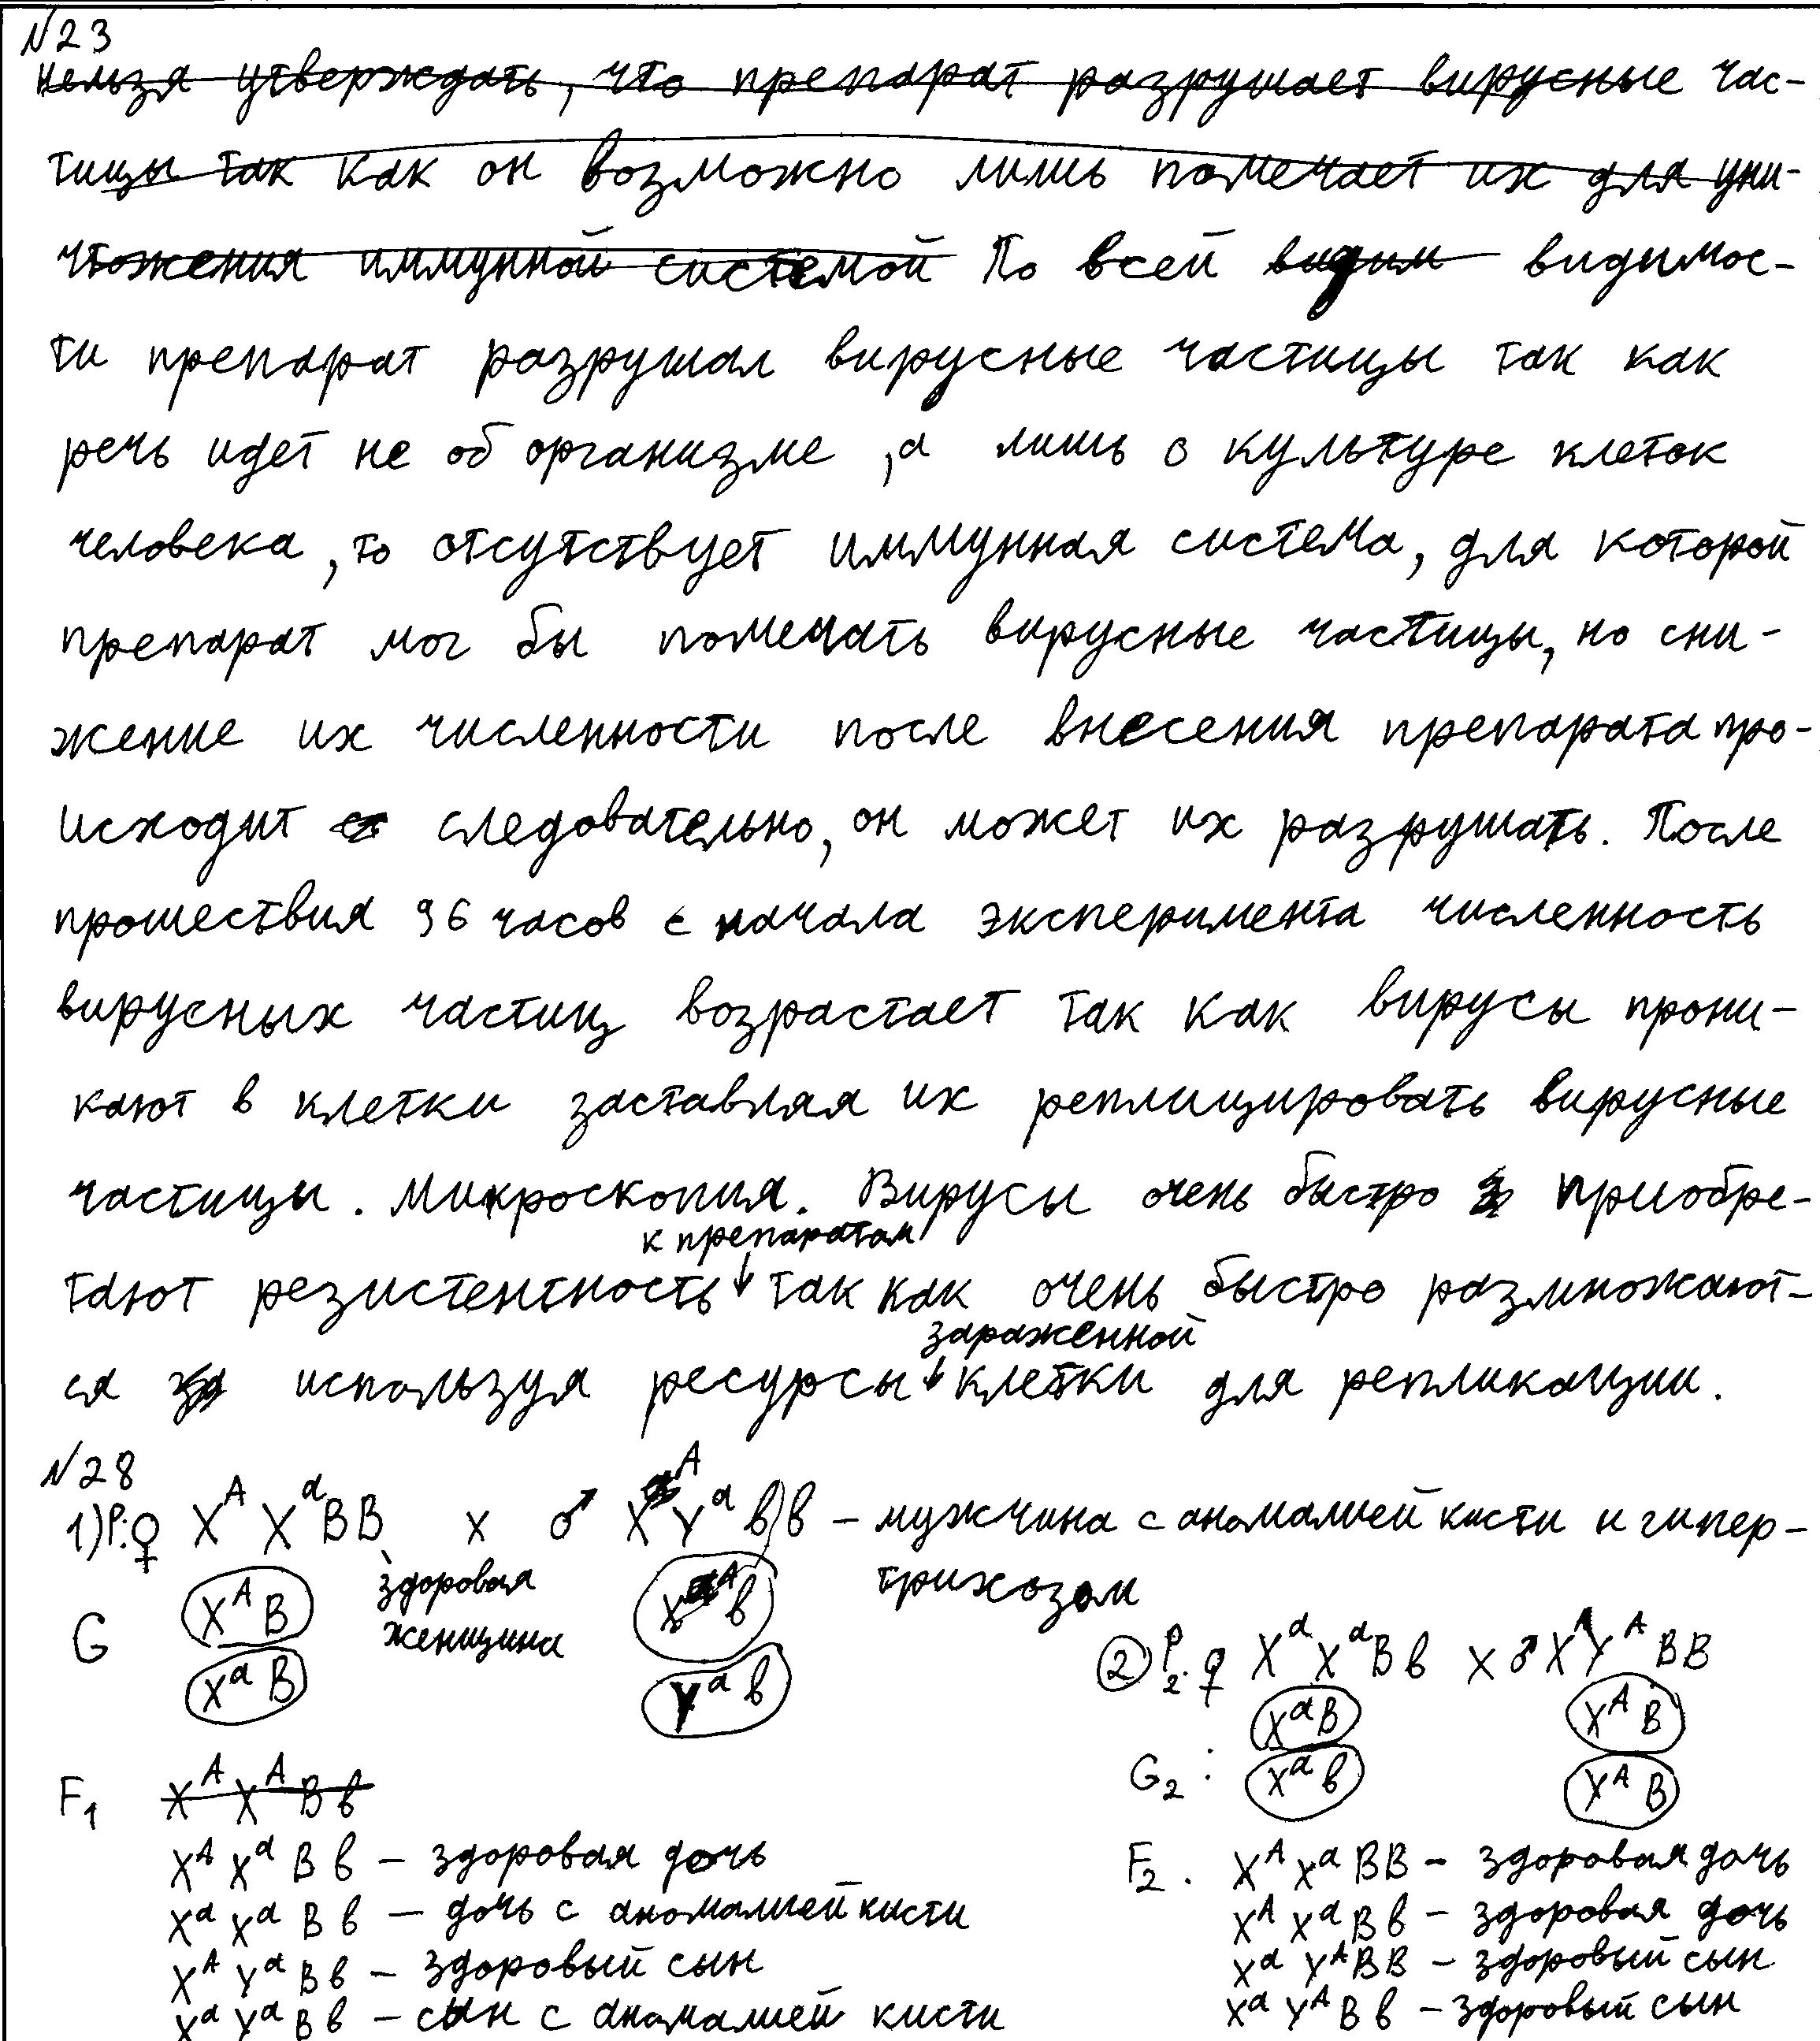 №23
нельзя утверждать, что препарат разрушает вирусные час-
тицы так как он возможно лишь помечает их для уни-
чтожения иммунной системой По всей видим видимос-
ти препарат разрушал вирусные частицы так как
речь идет не об организме, а лишь о культуре клеток
человека, то отсутствует иммунная система, для которой
препарат мог бы помечать вирусные частицы, но сни-
жение их численности после внесения препарата про-
исходит следовательно, он может их разрушать. После
прошествия 96 часов с начала эксперимента численность
вирусных частиц возрастает так как вирусы прони-
кают в клетки заставляя их реплицировать вирусные
частицы. Микроскопия. Вирусы очень быстро приобре-
к препаратам
тают резистентность ↓ так как очень быстро размножают-
зараженной
ся используя ресурсы ↓ клетки для репликации.
№28
1) P: ♀ X^A X^a BB x ♂ X^A Y^a bb – мужчина с аномалией кисти и гипер-
здоровая трихозом
женщина
G X^A B X^A b
X^a B Y^a b
2) P2: ♀ X^a X^a Bb x ♂ X^A Y^A BB
G2: X^a B X^A B
X^a b X^A B
F1 X^A X^A Bb
X^A X^a Bb – здоровая дочь
X^a X^a Bb – дочь с аномалией кисти
X^A Y^a Bb – здоровый сын
X^a Y^a Bb – сын с аномалией кисти
F2. X^A X^a BB – здоровая дочь
X^A X^a Bb – здоровая дочь
X^a Y^A BB – здоровый сын
X^a Y^A Bb – здоровый сын